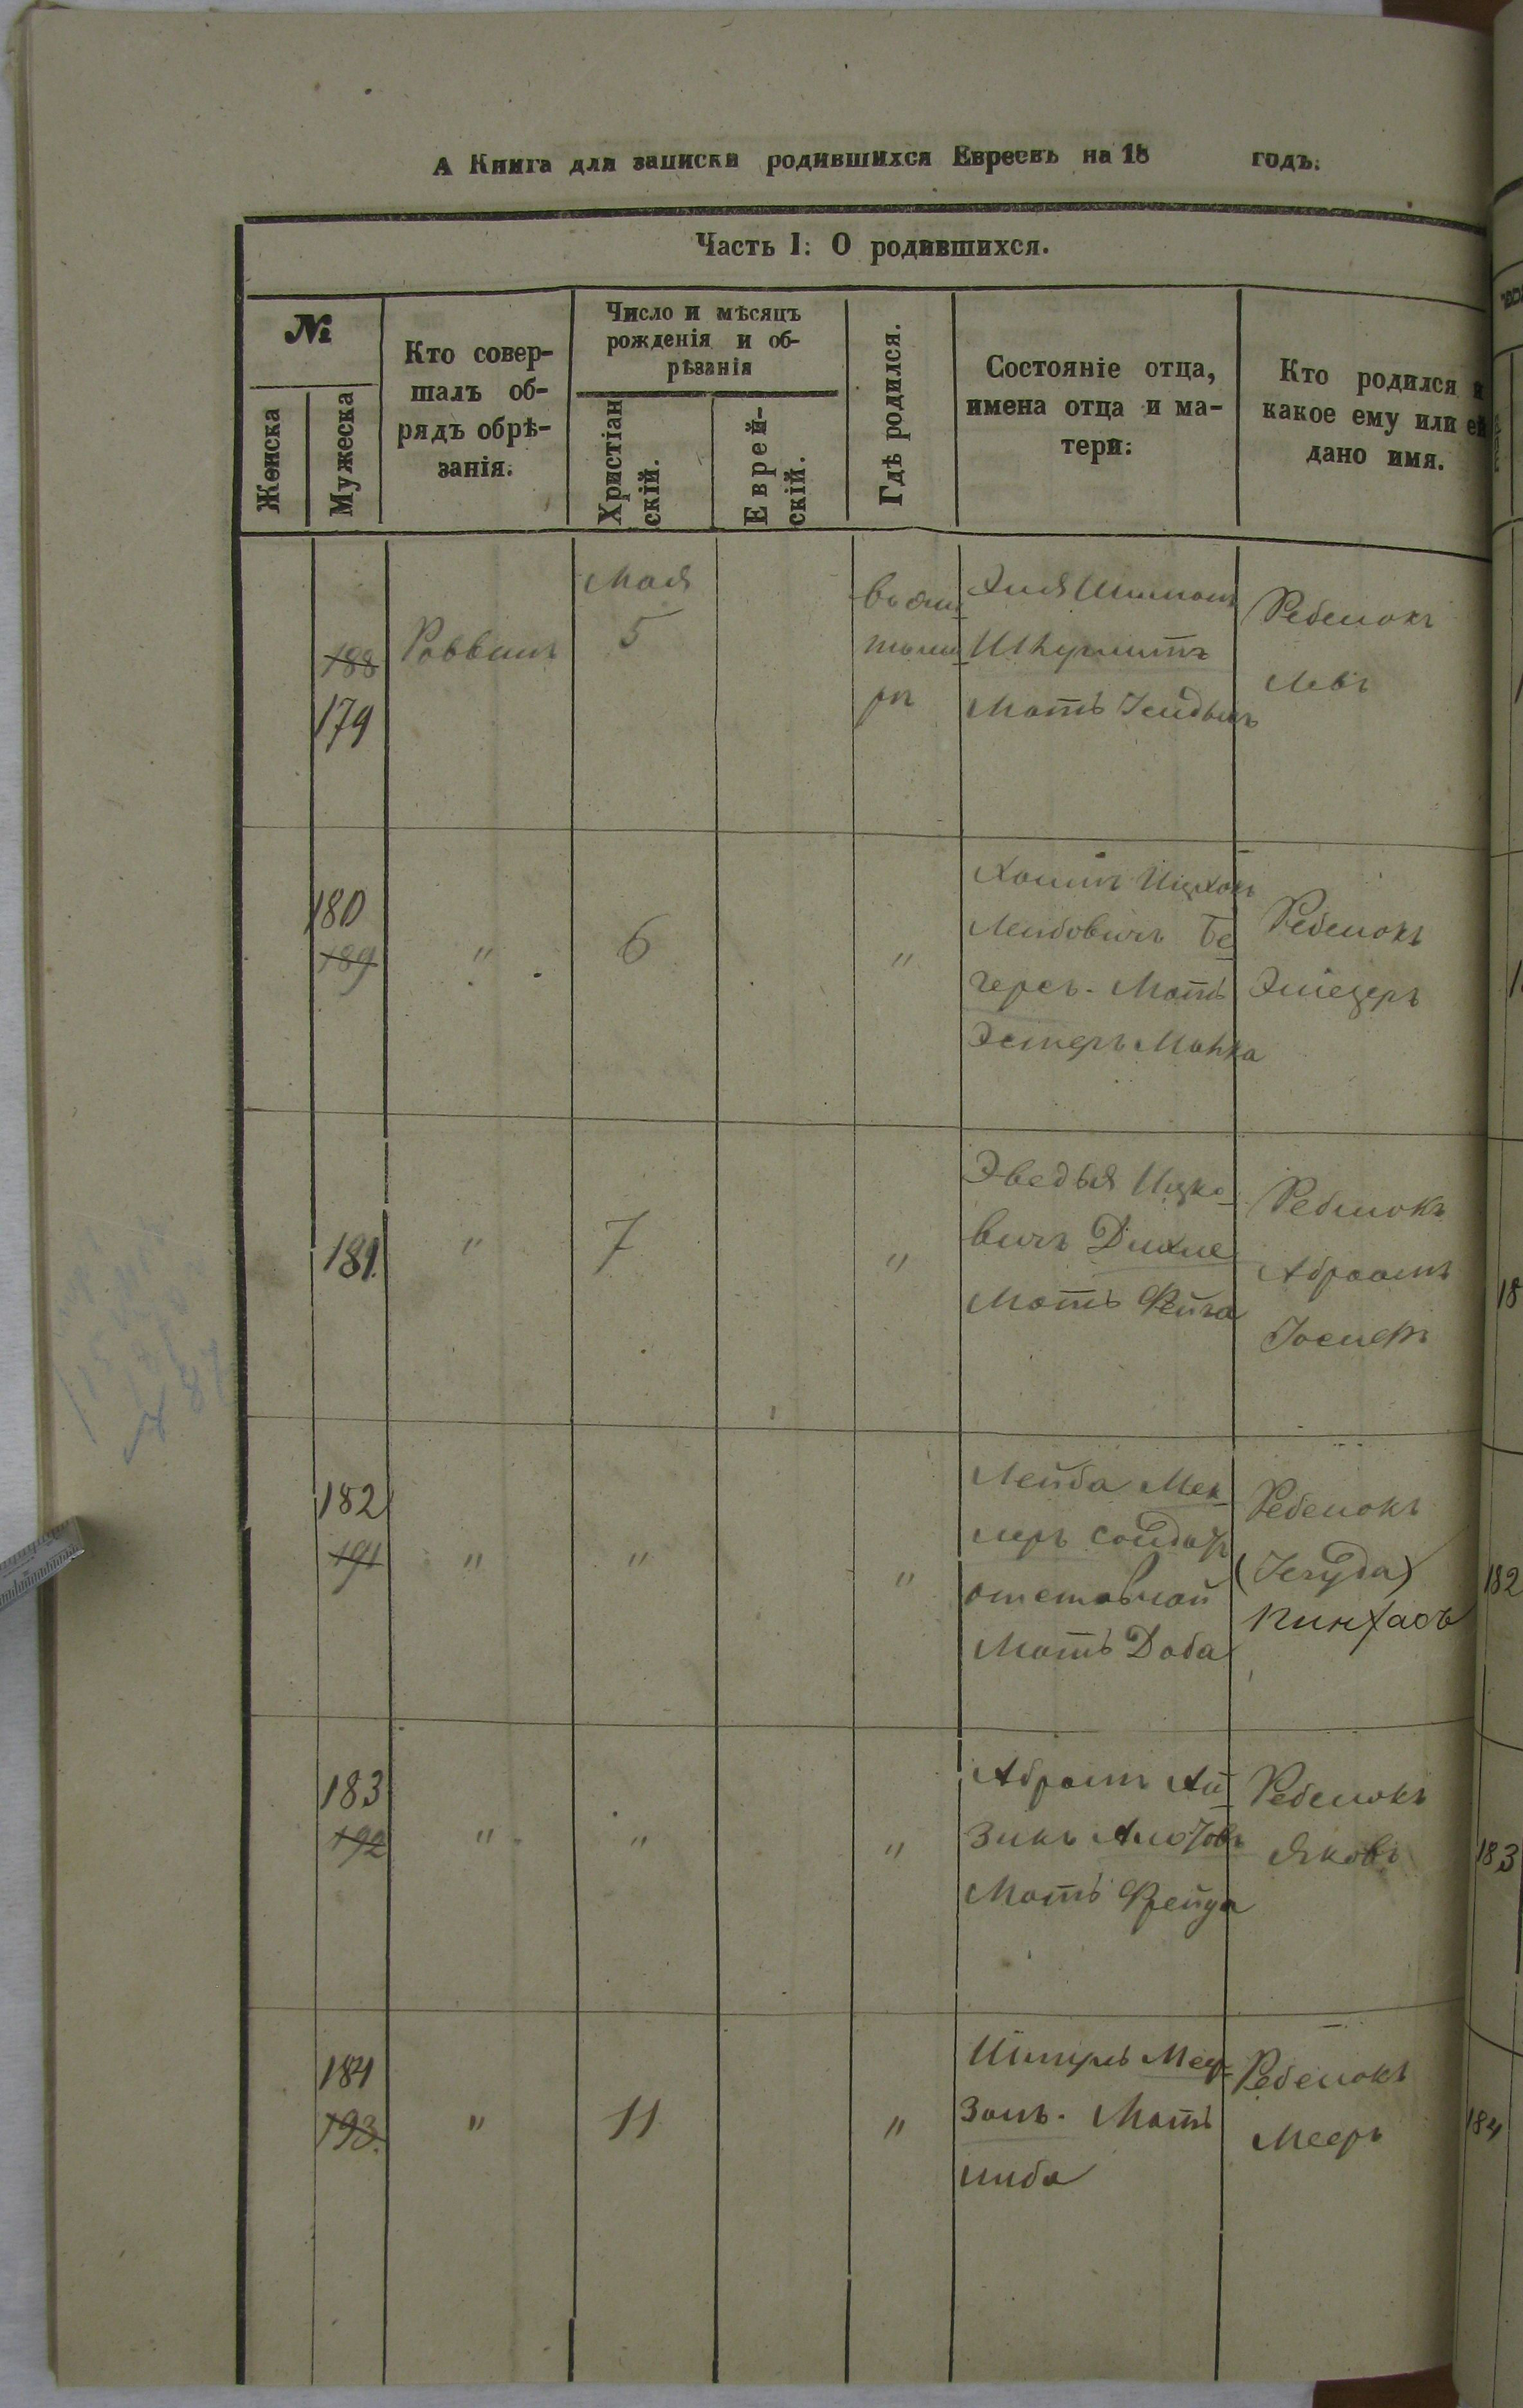 А Книга для записки родившихся Евреевъ на 18 годъ.
Часть I: О родившихся.
№
Женска
Мужеска
Кто совер-
шалъ об-
рядъ обрѣ-
занія.
Число и мѣсяцъ
рожденія и об-
рѣзанія
Христіан
скій.
Еврей-
скій.
Гдѣ родился.
Состояніе отца,
имена отца и ма-
тери:
Кто родился и
какое ему или ей
дано имя.
188
179
Раввинъ
Мая
5
Мать
Ребенокъ
Левъ
180
189
"
6
"
Хаимъ Ицхокъ
Лейбовичъ Бе
герсъ. Мать
Эстеръ Манка
Ребенокъ
Эліезеръ
181.
"
7
"
Эведья Ицко-
вичъ Дихне
Мать Фейга
Ребенокъ
Абрамъ
Іосифъ
182
191
"
"
"
Лейба Мек-
леръ солдатъ
отставной
Мать Доба
Ребенокъ
(Іегуда)
Пинхасъ
183
192
"
"
"
Абрамъ Ай-
зикъ
Мать Фрейда
Ребенокъ
Яковъ
184
193.
"
11
"
Мать
Ребенокъ
Мееръ
18
182
183
184